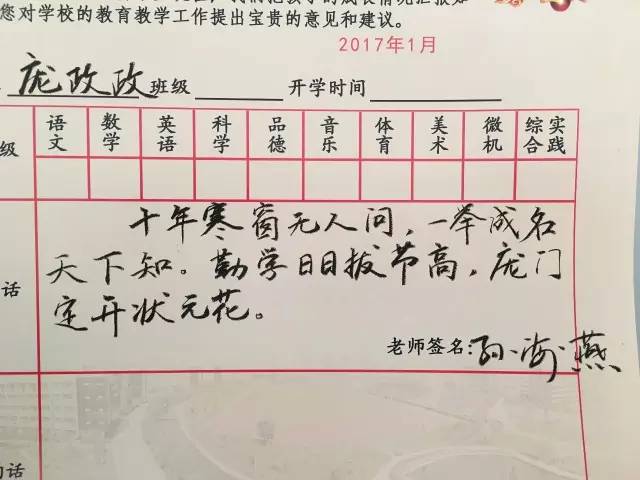 您对学校的教育教学工作提出宝贵的意见和建议。
2017年1月
庞政政 班级 开学时间
语文 数学 英语 科学 品德 音乐 体育 美术 微机 综合实践
级
十年寒窗无人问，一举成名
天下知。勤学日日拔节高，庞门
定开状元花。
话
老师签名：孙海燕
的话